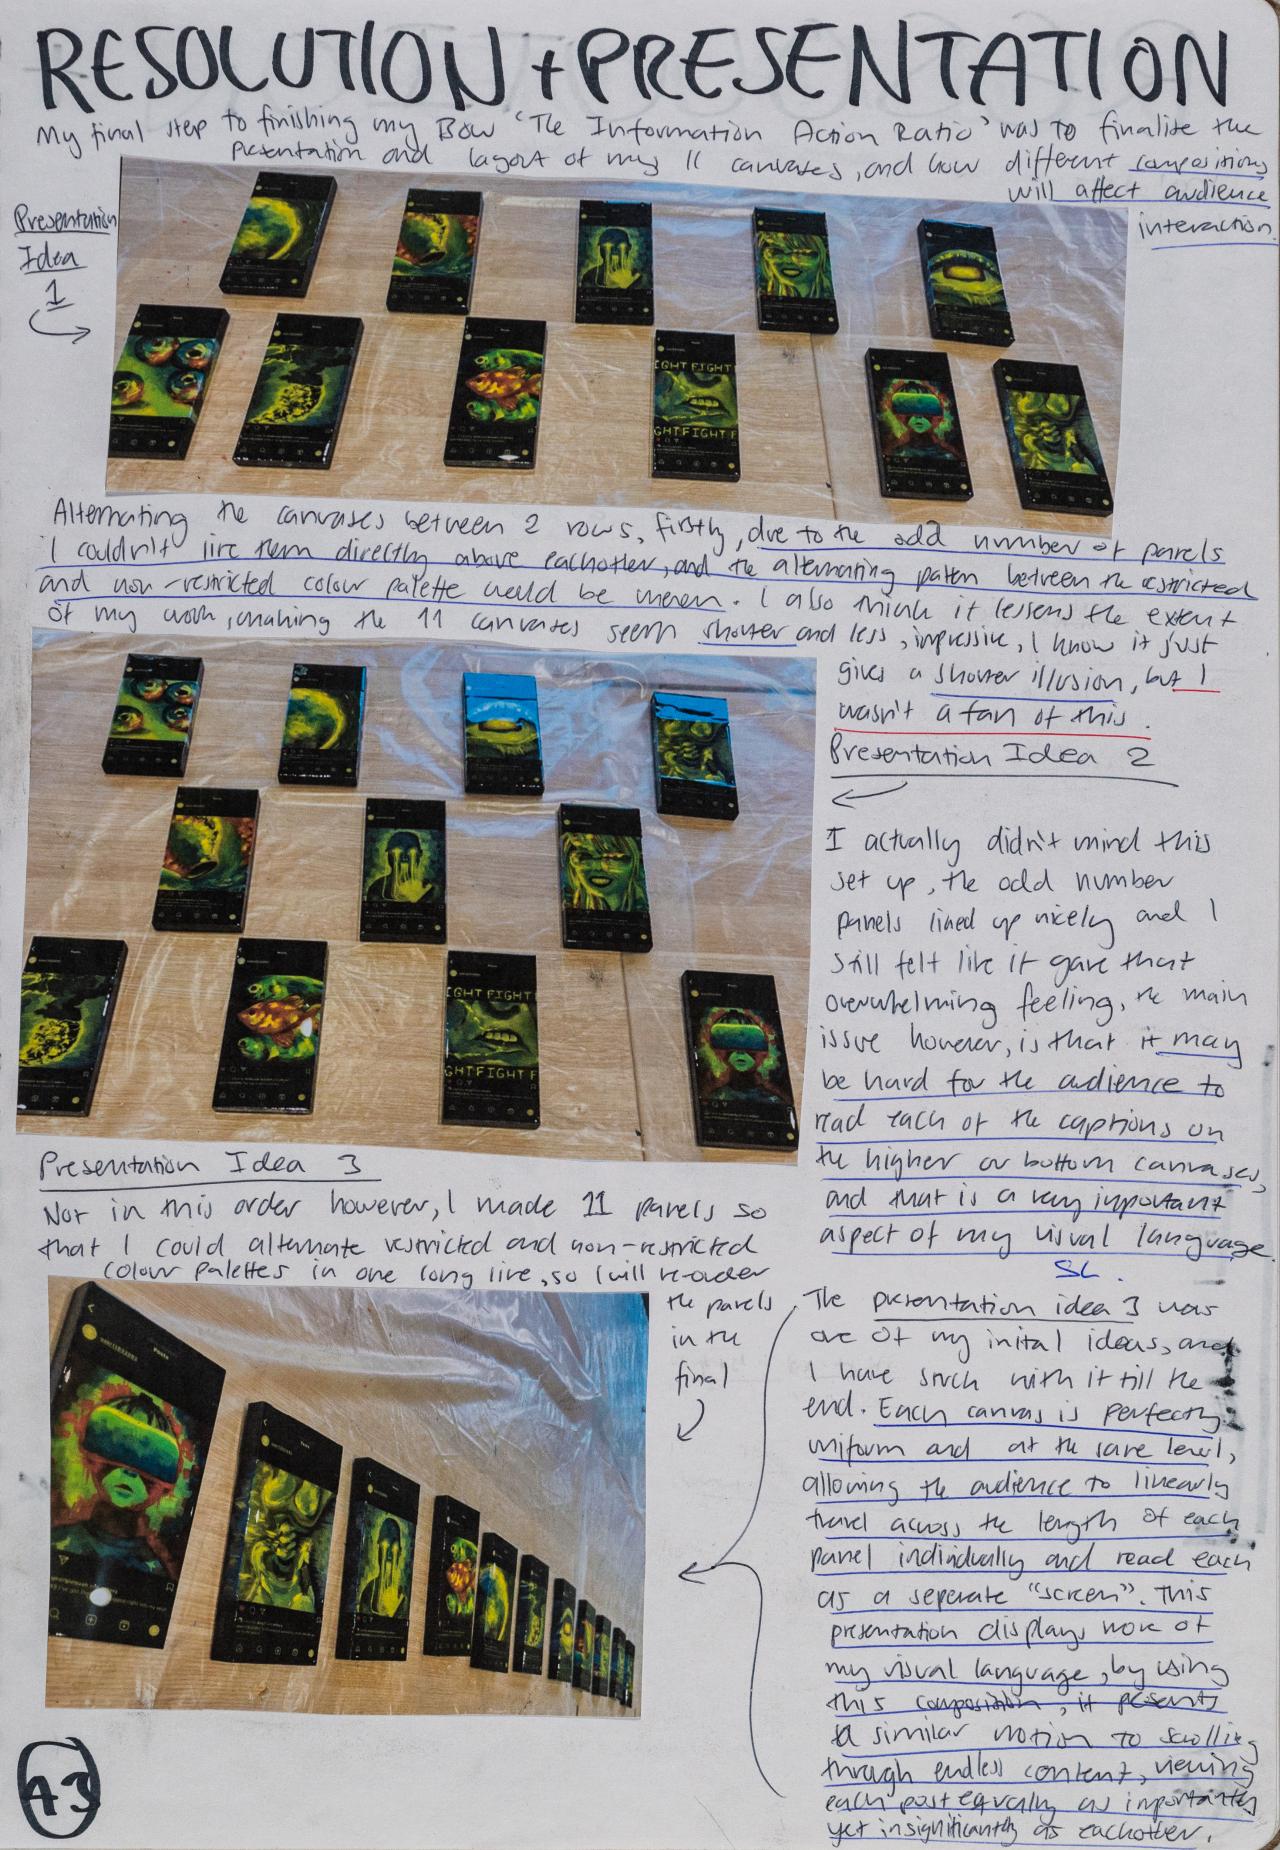 RESOLUTION + PRESENTATION
My final step to finishing my BOW 'The Information Action Ratio' was to finalise the
presentation and layout of my 11 canvases, and how different compositions
will affect audience
interaction.
Presentation
Idea
1
IGHT FIGHT
GHT FIGHT F
Alternating the canvases between 2 rows, firstly, due to the odd number of panels
I couldn't line them directly above eachother, and the alternating patten between the restricted
and non-restricted colour palette would be uneven. I also think it lessens the extent
of my work, making the 11 canvases seem shorter and less, impressive, I know it just
gives a shorter illusion, but I
wasn't a fan of this.
Presentation Idea 2
I actually didn't mind this
set up, the odd number
panels lined up nicely and I
still felt like it gave that
overwhelming feeling, the main
issue however, is that it may
be hard for the audience to
read each of the captions on
the higher or bottom canvases,
and that is a very important
aspect of my visual language.
SL.
IGHT FIGHT
GHT FIGHT F
Presentation Idea 3
Not in this order however, I made 11 panels so
that I could alternate restricted and non-restricted
colour palettes in one long line, so I will re-order
the panels
in the
final
Posts
The presentation idea 3 was
one of my inital ideas, and
I have stuck with it till the
end. Each canvas is perfectly
uniform and at the same level,
allowing the audience to linearly
travel across the length of each
panel individually and read each
as a seperate "screen". This
presentation displays more of
my visual language, by using
this composition, it presents
a similar notion to scrolling
through endless content, viewing
each post equally as importantly
yet insignificantly as eachother.
43